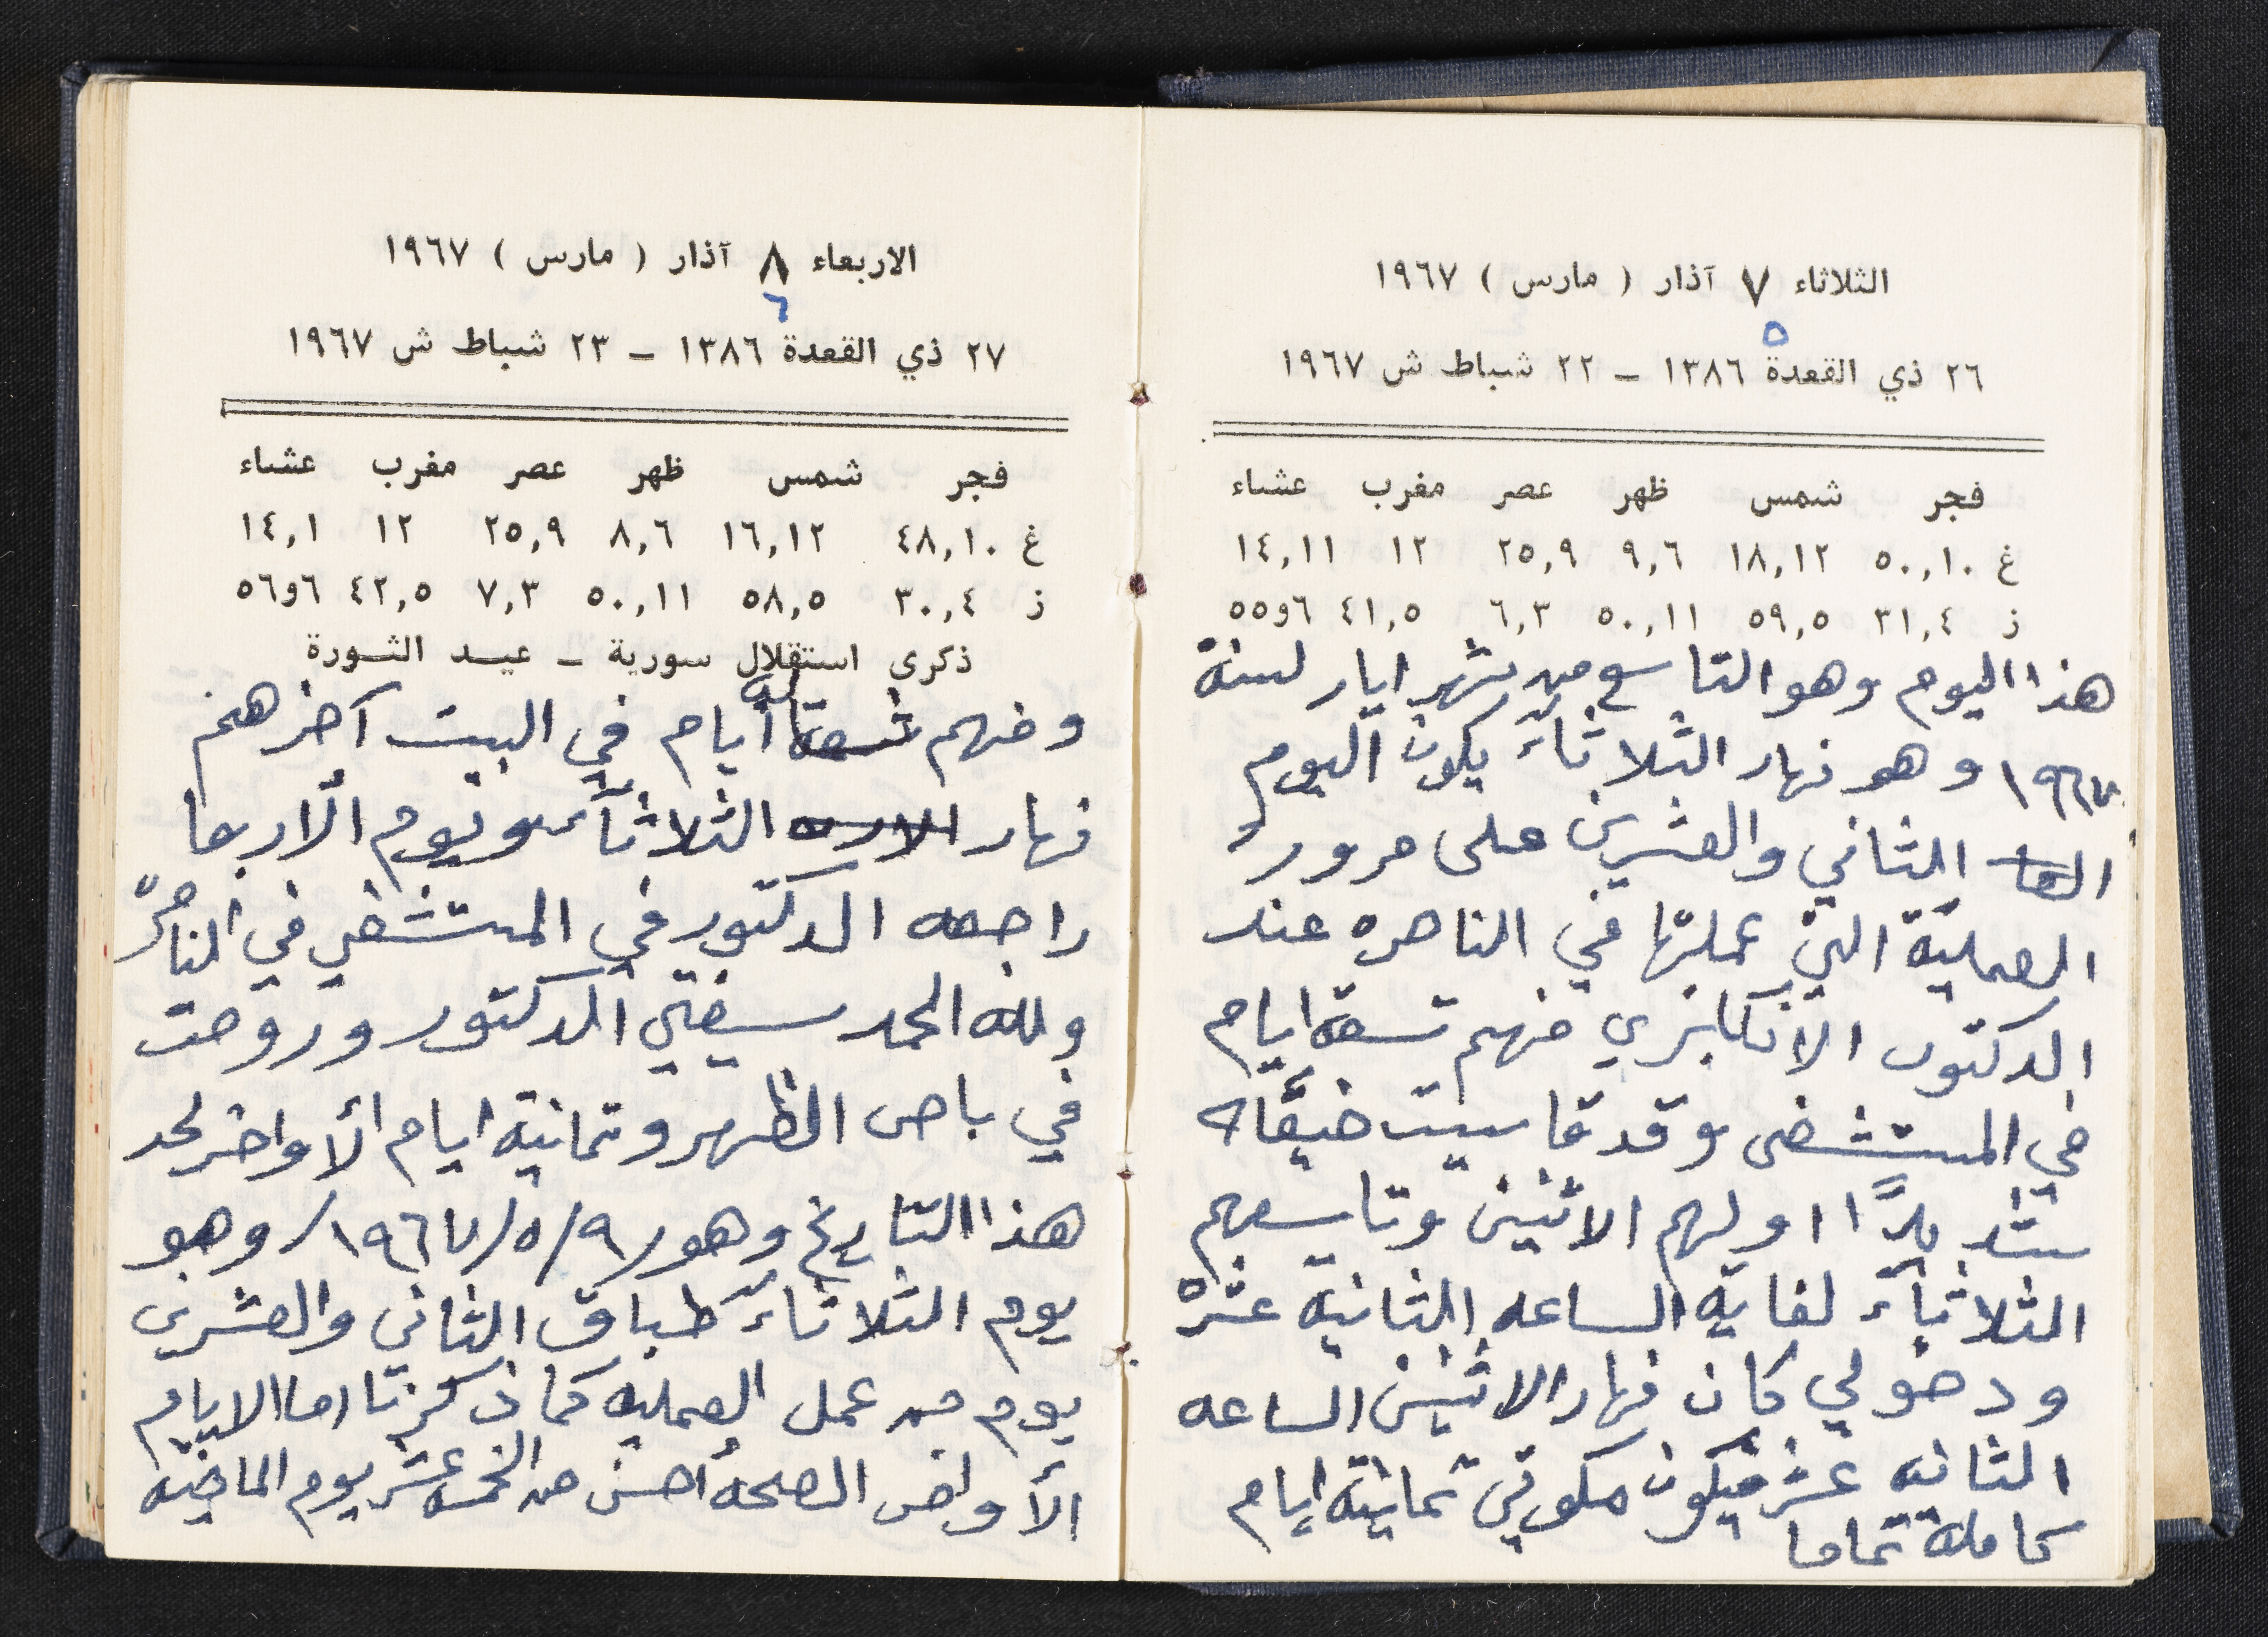 الثلاثاء ٧ آذار ( مارس ) ١٩٦٧
٥
٢٦ ذي القعدة ١٣٨٦ – ٢٢ شباط ش ١٩٦٧
فجر شمس ظهر عصر مغرب عشاء
غ ٥٠,١٠ ١٨,١٢ ٩,٦ ٢٥,٩ ١٢ ١٤,١١
ز ٣١,٤ ٥٩,٥ ٥٠,١١ ٦,٣ ٤١,٥ ٦و٥٥
هذا اليوم وهو التاسع من شهر ايار لسنة
١٩٦٧ وهو نهار الثلاثاء يكون اليوم
الثاني والعشرين على مرور
العملية التي عملتها في الناصره عند
الدكتور الانكليزي منهم تسعة ايام
في المستشفى وقد قاسيت ضيقاً
اولهم الاثنين وتاسعهم
الثلاثاء لغاية الساعه الثانيه عشرة
ودخولي كان نهار الاثنين الساعه
الثانيه عشر فيكون مكوثي ثمانية ايام
كامله تماما
الاربعاء ٨ آذار ( مارس ) ١٩٦٧
٦
٢٧ ذي القعدة ١٣٨٦ – ٢٣ شباط ش ١٩٦٧
فجر شمس ظهر عصر مغرب عشاء
غ ٤٨,١٠ ١٦,١٢ ٨,٦ ٢٥,٩ ١٢ ١٤,١
ز ٣٠,٤ ٥٨,٥ ٥٠,١١ ٧,٣ ٤٢,٥ ٦و٥٦
ذكرى استقلال سورية – عيد الثورة
ومنهم أيام في البيت آخرهم
نهار الثلاثاء ويوم الاربعا
راجعه الدكتور في المستشفي في
ولله الحمد الدكتور وروحت
في باص الظهر وثمانية ايام الأواخر لحد
هذا التاريخ وهو ٩/٥/١٩٦٧/ وهو
يوم الثلاثاء طباق الثاني والعشرين
يوم من عمل العمليه كما ذكرنا اما الايام
الأواخر الصحه أحسن من الخمسه عشر يوم الماضيه